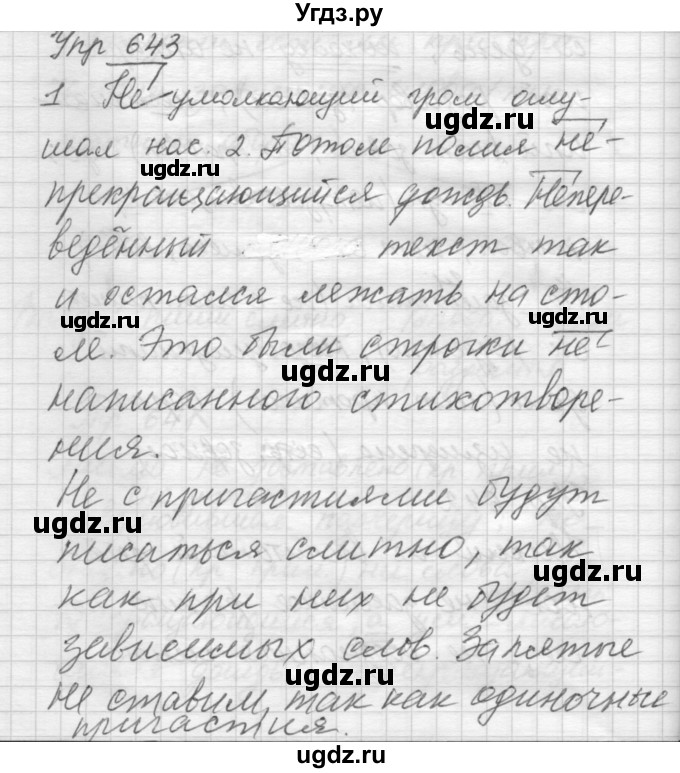 Угдз.ру
Упр 643
1 Не умолкающий гром оглу-
шал нас. 2. Потом полил не-
прекращающийся дождь. Непере-
ведённый текст так
и остался лежать на сто-
ле. Это были строчки не
написанного стихотворе-
ния.
Не с причастиями будут
писаться слитно, так
как при них не будет
зависимых слов. Запятые
не ставим, так как одиночные
причастия.
ugdz.ru
ugdz.ru
ugdz.ru
ugdz.ru
ugdz.ru
ugdz.ru
ugdz.ru
ugdz.ru
ugdz.ru
ugdz.ru
ugdz.ru